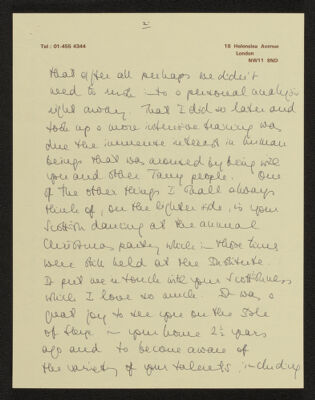 2
Tel : 01-455 4344
18 Holenslea Avenue
London
NW11 8ND
that after all perhaps we didn't
need to rush into a personal analysis
right away. That I did so later and
took up a more intensive training was
due the immense interest in human
beings that was aroused by being with
you and other Tavvy people. One
of the other things I shall always
think of, on the lighter side, is your
Scottish dancing at the annual
Christmas party which in those times
were still held at the Institute.
It put me in touch with your Scottishness
which I love so much. It was a
great joy to see you on the Isle
of Skye in your home 2½ years
ago and to become aware of
the variety of your talents, including